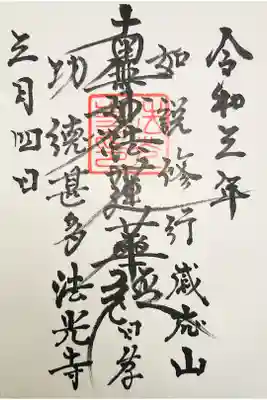 令和三年
如説修行
蔵応山
南無妙法蓮華経
功徳甚多
法光寺
三月四日